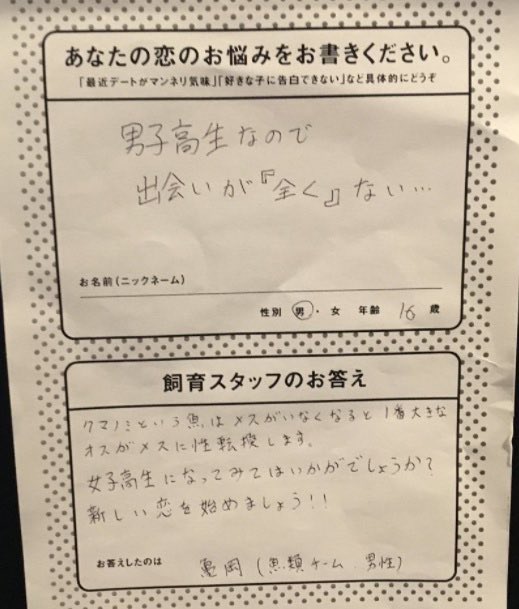 あなたの恋のお悩みをお書きください。
「最近デートがマンネリ気味」「好きな子に告白できない」など具体的にどうぞ
男子高生なので
出会いが『全く』ない…
お名前(ニックネーム)
性別 男・女 年齢 16 歳
飼育スタッフのお答え
クマノミという魚はメスがいなくなると1番大きな
オスがメスに性転換します。
女子高生になってみてはいかがでしょうか?
新しい恋を始めましょう!!
お答えしたのは 亀岡(魚類チーム 男性)